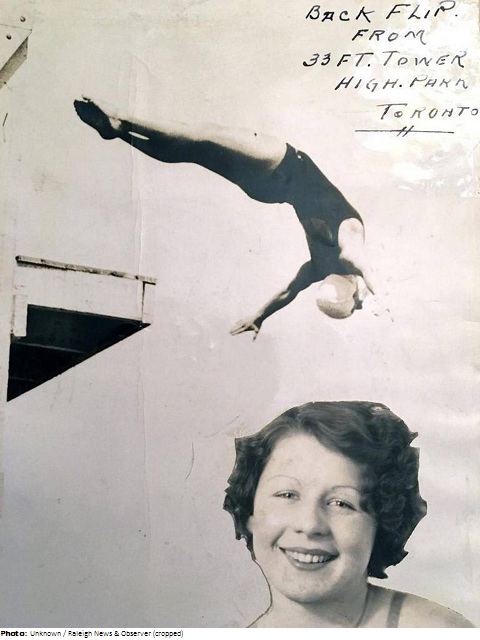 BACK FLIP.
FROM
33 FT. TOWER
HIGH. PARK
TORONTO
Photo: Unknown / Raleigh News & Observer (cropped)